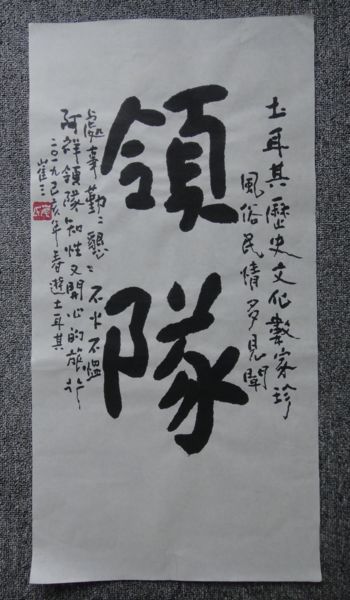 土耳其歷史文化數家珍
風俗民情多見聞
領隊
處事勤懇懇不火不慍
阿祥領隊知性又開心的旅行
二〇一九己亥年春遊土耳其
崔三